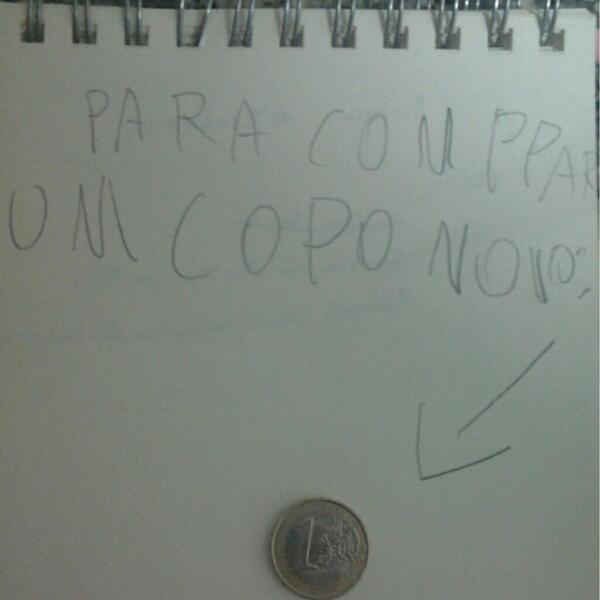 PARA COMPPAR
UM COPO NOVO:
1